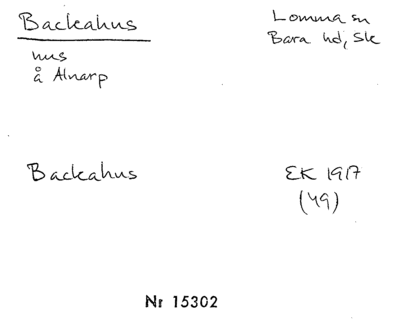 Backahus
Lomma sn
Bara hd, Sk
hus
å Alnarp
Backahus
EK 1917
(49)
Nr 15302